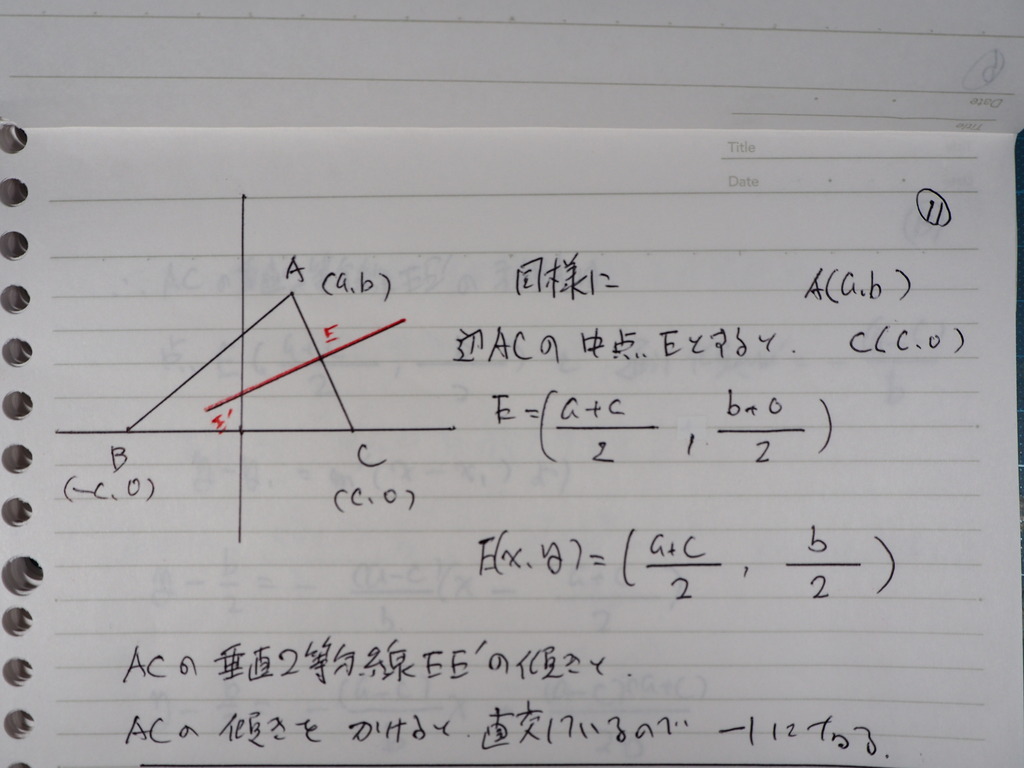 Title
Date
⑪
A (a,b)
同様に A(a,b)
辺ACの中点Eとすると. C(c,0)
E
E = (a+c/2, b+0/2)
E'
B
(-c,0)
C
(c,0)
E(x,y) = (a+c/2, b/2)
ACの垂直2等分線EE'の傾きと
ACの傾きをかけると.直交しているので -1になる.